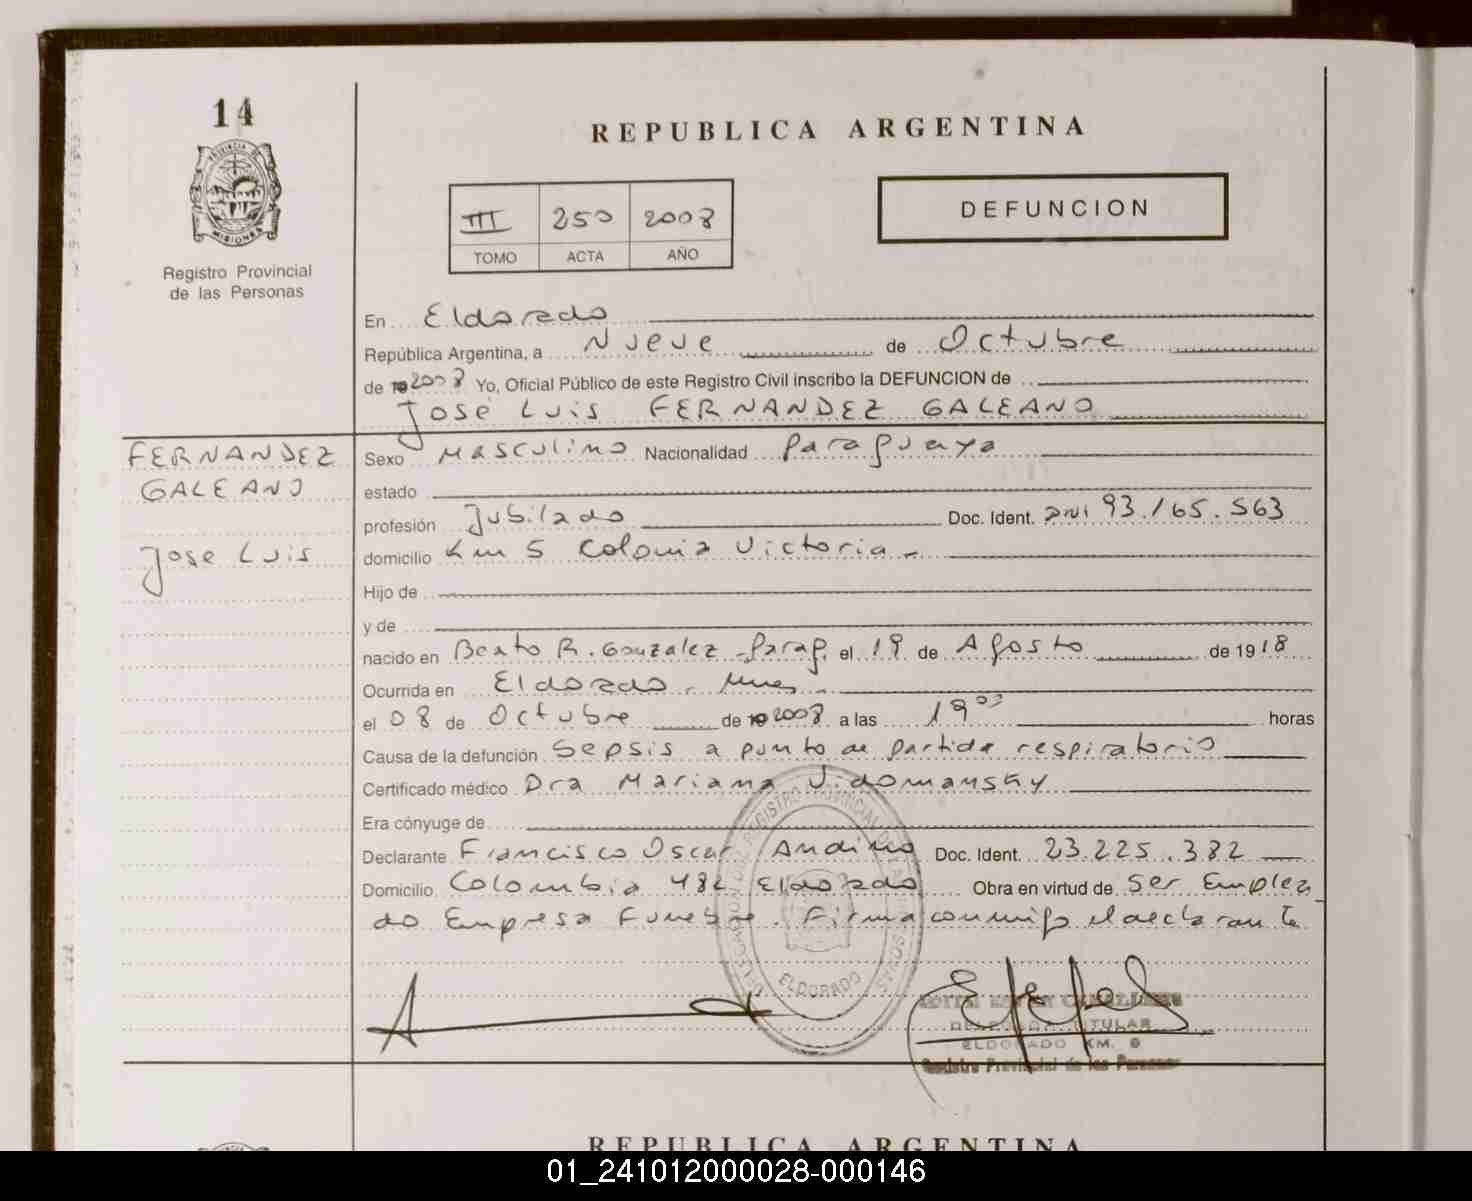 14
PROVINCIA DE
MISIONES
Registro Provincial
de las Personas
REPUBLICA ARGENTINA
III 250 2008
TOMO ACTA AÑO
DEFUNCION
En Eldorado
República Argentina, a Nueve de Octubre
de 19 2008 Yo, Oficial Público de este Registro Civil inscribo la DEFUNCION de
José Luis FERNANDEZ GALEANO
FERNANDEZ
GALEANO
Jose Luis
Sexo Masculino Nacionalidad Paraguaya
estado
profesión Jubilado Doc. Ident. DNI 93.165.563
domicilio Km 5 Colonia Victoria
Hijo de
y de
nacido en Beato R. Gonzalez - Parag. el 19 de Agosto de 1918
Ocurrida en Eldorado, Mnes
el 08 de Octubre de 19 2008 a las 19 00 horas
Causa de la defunción Sepsis a punto de partida respiratorio
Certificado médico Dra Mariana Vidomansky
Era cónyuge de
Declarante Francisco Oscar Andino Doc. Ident. 23.225.382
Domicilio Colombia 482 Eldorado Obra en virtud de Ser Emplea
do Empresa Funebre. Firma conmigo el declarante
ELDORADO
DELEGADA TITULAR
ELDORADO KM. 9
Registro Provincial de las Personas
REPUBLICA ARGENTINA
01_241012000028-000146